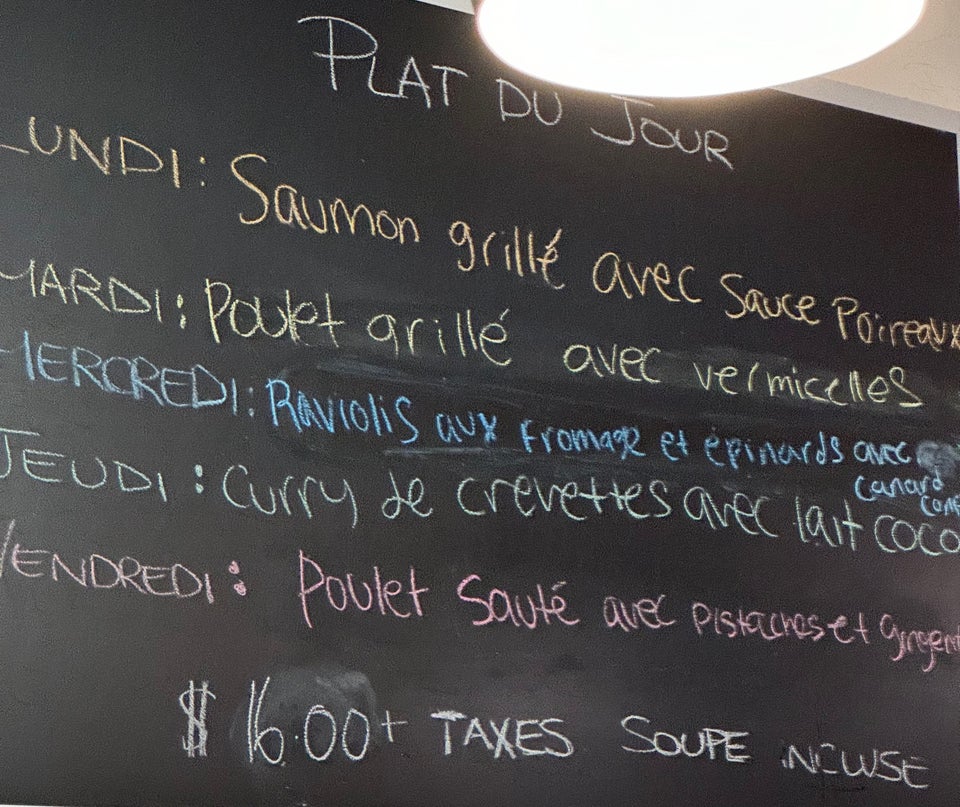 PLAT DU JOUR
LUNDI: Saumon grillé avec sauce Poireaux
MARDI: Poulet grillé avec vermicelles
MERCREDI: Raviolis aux fromage et épinards avec
canard
conf
JEUDI: Curry de crevettes avec lait coco
VENDREDI: Poulet sauté avec pistaches et gingem
$16.00+ TAXES SOUPE INCLUSE